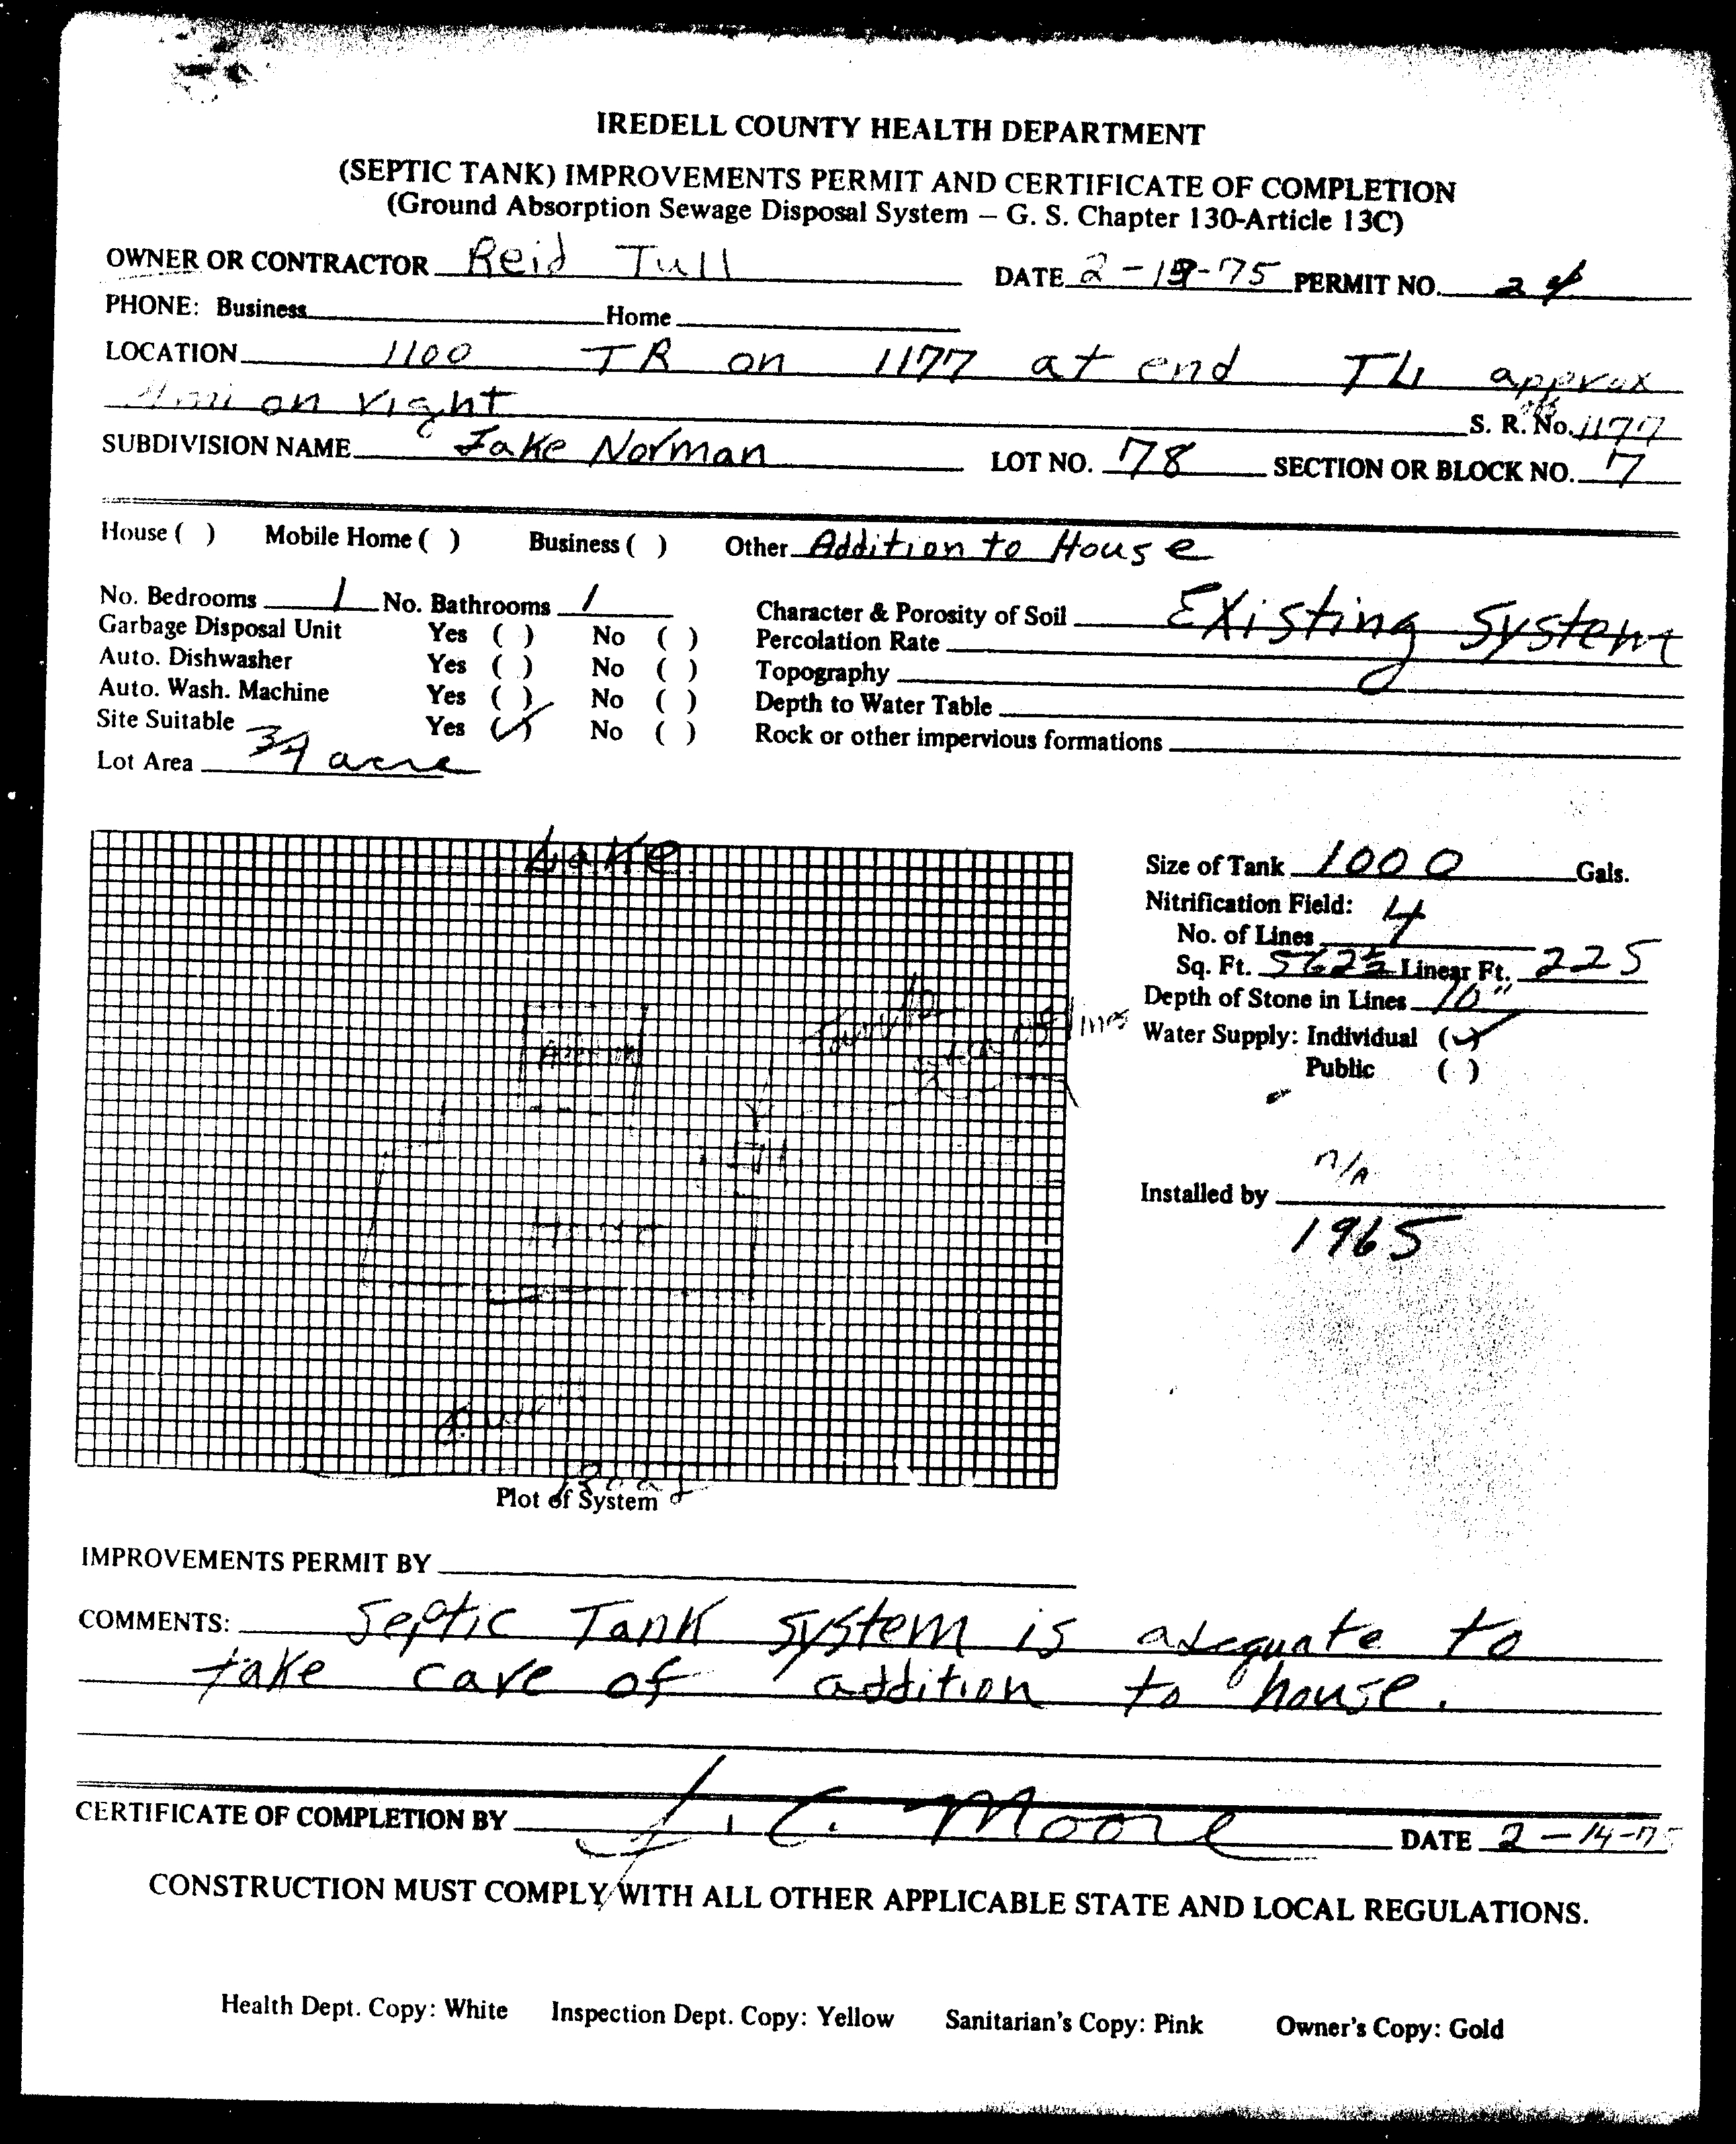 IREDELL COUNTY HEALTH DEPARTMENT
(SEPTIC TANK) IMPROVEMENTS PERMIT AND CERTIFICATE OF COMPLETION
(Ground Absorption Sewage Disposal System – G. S. Chapter 130-Article 13C)
OWNER OR CONTRACTOR Reid Tull DATE 2-1-75 PERMIT NO. 24
PHONE: Business Home
LOCATION 1100 TR on 1177 at end TL approx
on right S. R. No. 1177
SUBDIVISION NAME Lake Norman LOT NO. 78 SECTION OR BLOCK NO. 7
House ( ) Mobile Home ( ) Business ( ) Other Addition to House
No. Bedrooms 1 No. Bathrooms 1 Character & Porosity of Soil Existing System
Garbage Disposal Unit Yes ( ) No ( ) Percolation Rate
Auto. Dishwasher Yes ( ) No ( ) Topography
Auto. Wash. Machine Yes ( ) No ( ) Depth to Water Table
Site Suitable Yes (✓) No ( ) Rock or other impervious formations
Lot Area 3/4 acre
Lake
Size of Tank 1000 Gals.
Nitrification Field:
No. of Lines 4
Sq. Ft. 562½ Linear Ft. 225
Depth of Stone in Lines 10"
Water Supply: Individual (✓)
Public ( )
Installed by n/a
1965
House
Road
Plot of System
IMPROVEMENTS PERMIT BY
COMMENTS: Septic Tank system is adequate to
take care of addition to house.
CERTIFICATE OF COMPLETION BY J. C. Moore DATE 2-14-75
CONSTRUCTION MUST COMPLY WITH ALL OTHER APPLICABLE STATE AND LOCAL REGULATIONS.
Health Dept. Copy: White Inspection Dept. Copy: Yellow Sanitarian's Copy: Pink Owner's Copy: Gold